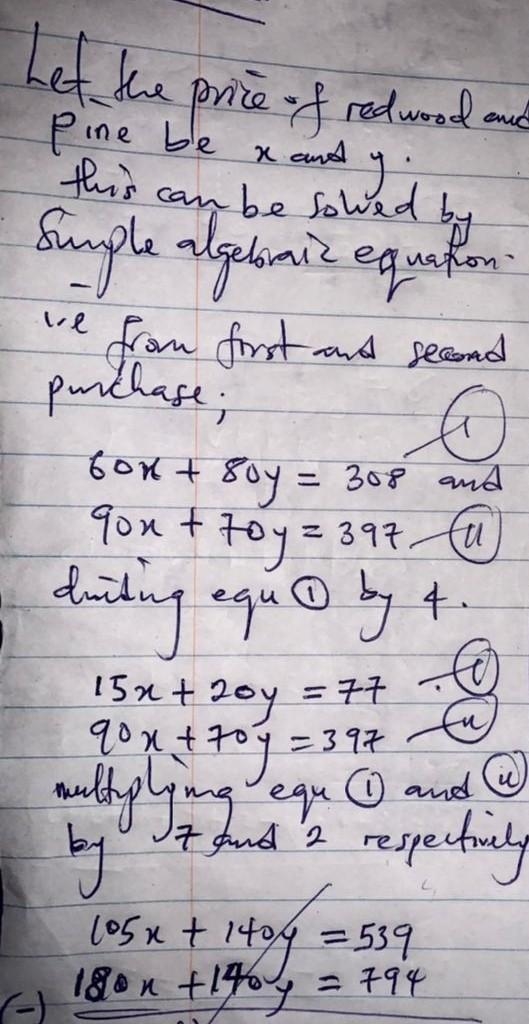 Let the price of redwood and
Pine be x and y.
this can be solved by
Simple algebraic equation.
i.e from first and second
purchase;
60x + 80y = 308 and (i)
90x + 70y = 397 (ii)
dividing equ (i) by 4.
15x + 20y = 77 (i)
90x + 70y = 397 (ii)
multiplying equ (i) and (ii)
by 7 and 2 respectively
105x + 140y = 539
(-) 180x + 140y = 794